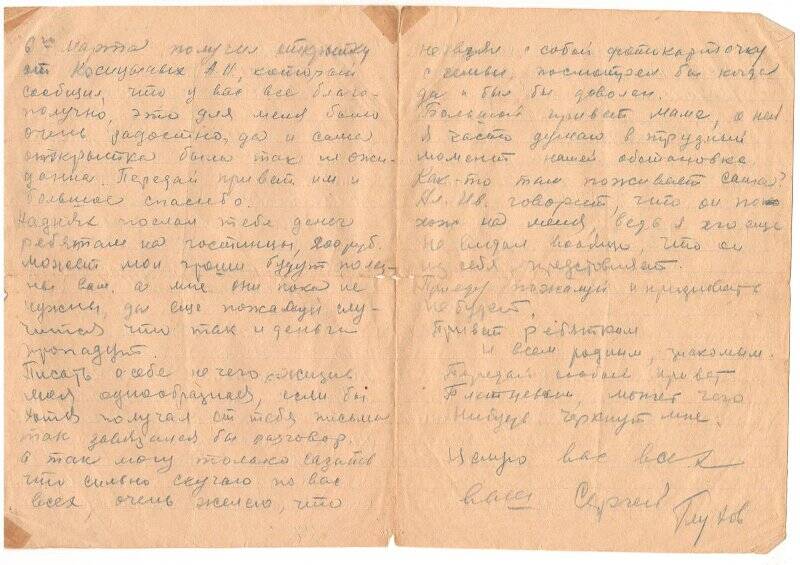 6го марта получил открытку
от Косицыных А И, которая
сообщил, что у вас все благо-
получно, это для меня было
очень радостно, да и сама
открытка была так неожи-
данна. Передай привет им и
большое спасибо.
На днях послал тебе денег
ребятам на гостинцы, 200 руб.
Может мои гроши будут полез-
ны вам, а мне они пока не
нужны, да еще пожалуй слу-
чится что так и деньги
пропадут.
Писать о себе нечего, жизнь
моя однообразная, если бы
хотя получал от тебя письма
так завязался бы разговор.
а так могу только сказать
что сильно скучаю по вас
всех, очень жалею, что
не взял с собой фотокарточку
с семьи, посмотрел бы когда
да и был бы доволен.
Большой привет мама, о ней
я часто думаю в трудный
момент нашей обстановка
Как-то там поживает сашка?
Ал. Ив. говорит, что он по-
хож на меня, ведь я его еще
не видал вообще, что он
из себя представляет.
Приеду пожалуй и признавать
не будет,
Привет ребяткам
и всем родным, знакомым.
Передай особый привет
может чего
нибудь черкнут мне.
Целую вас всех
ваш Сергей
Глухов